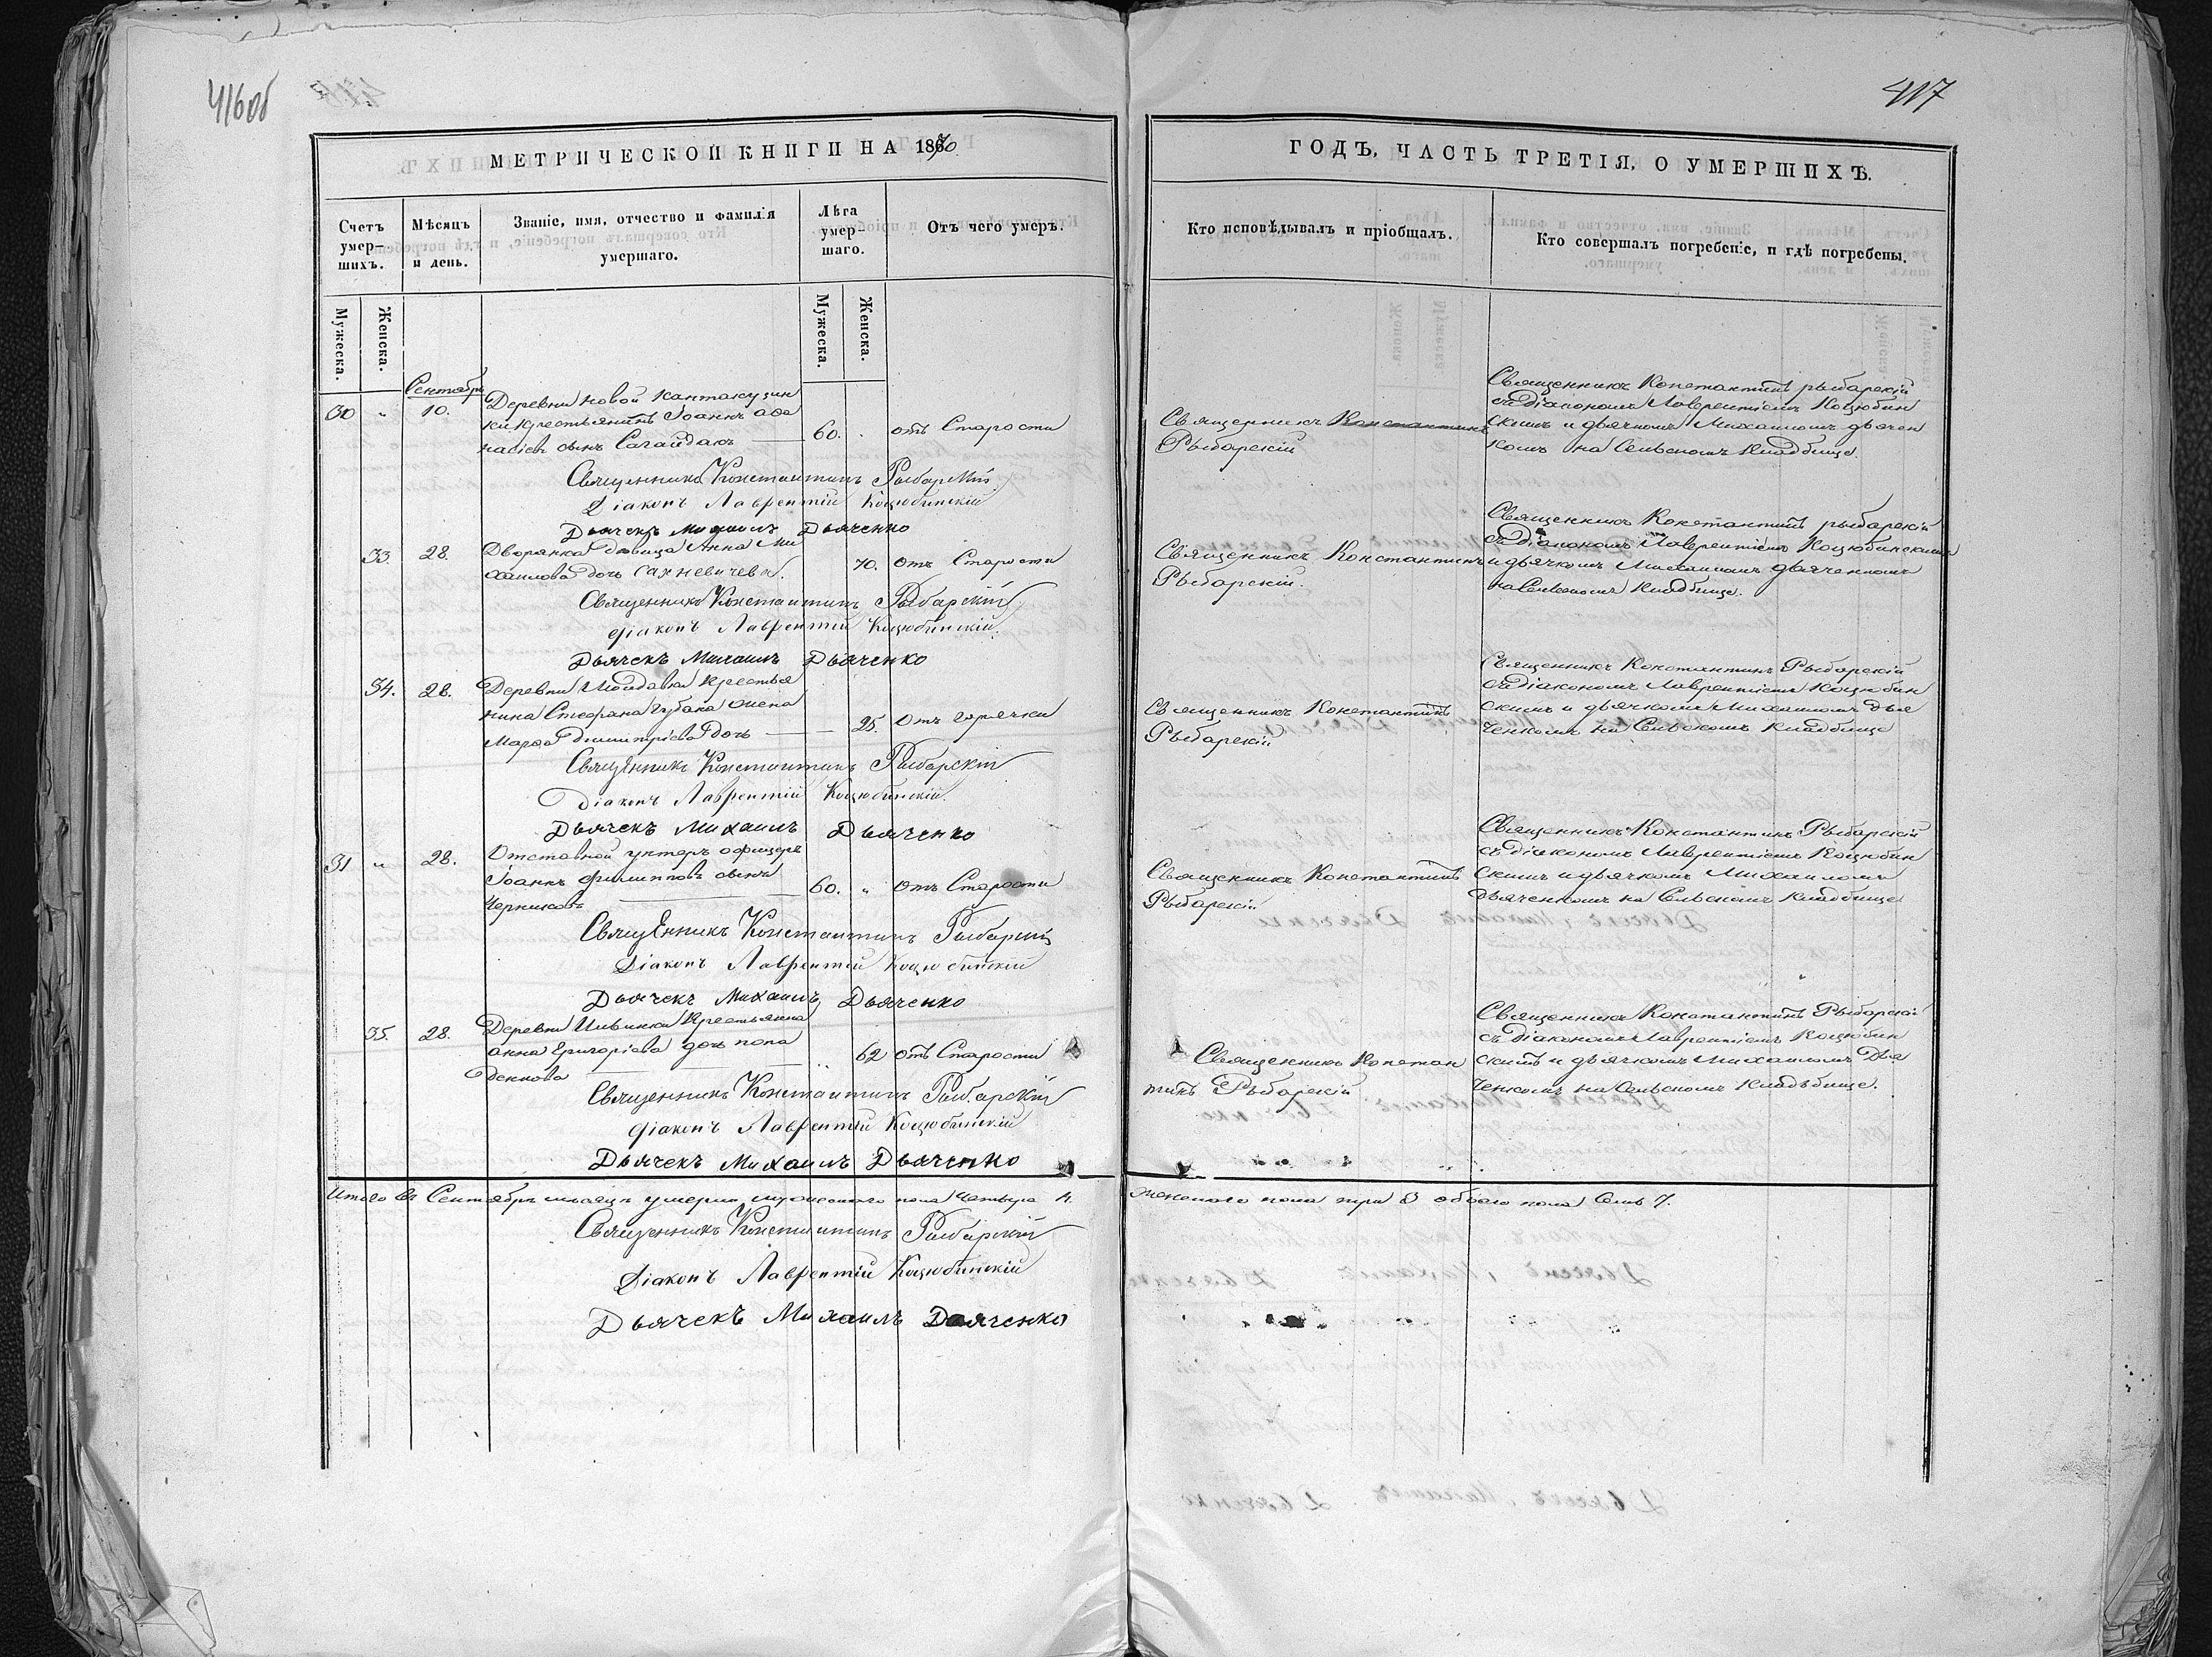 416об
417
МЕТРИЧЕСКОЙ КНИГИ НА 1870
ГОДЪ, ЧАСТЬ ТРЕТІЯ, О УМЕРШИХЪ.
Счетъ умер-
шихъ.
Мѣсяцъ
и день.
Званіе, имя, отчество и фамилія
умершаго.
Лѣта
умер-
шаго.
Отъ чего умеръ.
Кто исповѣдывалъ и пріобщалъ.
Кто совершалъ погребеніе, и гдѣ погребены.
Мужеска.
Женска.
Мужеска.
Женска.
Сентябрь
30 " 10. Деревни Новой Кантакузин
ки Крестьянинъ Іоаннъ Афа
насіевъ сынъ Сагайдакъ 60. отъ Старости
Священникъ Константинъ
Рыбарскій
Священникъ Константинъ рыбарскій
съ діакономъ Лаврентіемъ Коцюбин
скимъ и дьячкомъ Михаиломъ дьячен
комъ на Сельскомъ Кладбище.
Священникъ Константинъ Рыбарскій
Діаконъ Лаврентій Коцюбинскій
Дьячекъ Михаилъ Дьяченко
33. 28. Дворянка дѣвица Анна Ми
хаилова дочь Сахневичева. 70. отъ Старости
Священникъ Константинъ
Рыбарскій.
Священникъ Константинъ рыбарскій
съ діакономъ Лаврентіемъ Коцюбинскимъ
и дьячкомъ Михаиломъ дьяченкомъ
на Сельскомъ Кладбище.
Священникъ Константинъ Рыбарскій
діаконъ Лаврентій Коцюбинскій.
Дьячекъ Михаилъ Дьяченко
34. 28. Деревни Молдавки Крестья
нина Стефана Губана жена
Марфа Димитріева дочь 25. отъ горячки
Священникъ Константинъ
Рыбарскій
Священникъ Константинъ Рыбарскій
съ діакономъ Лаврентіемъ Коцюбин
скимъ и дьячкомъ Михаиломъ Дья
ченкомъ на Сельскомъ Кладбище
Священникъ Константинъ Рыбарскій
Діаконъ Лаврентій Коцюбинскій.
Дьячекъ Михаилъ Дьяченко
31 " 28. Отставной унтеръ офицеръ
Іоаннъ Филипповъ сынъ
Черниковъ 60. " отъ Старости
Священникъ Константинъ
Рыбарскій
Священникъ Константинъ Рыбарскій
съ діакономъ Лаврентіемъ Коцюбин
скимъ и дьячкомъ Михаиломъ
дьяченкомъ на Сельскомъ Кладбище
Священникъ Константинъ Рыбарскій
Діаконъ Лаврентій Коцюбинскій
Дьячекъ Михаилъ Дьяченко
35. 28. Деревни Крестьянка
анна Григоріева дочь попа
денкова 62 отъ Старости
Священникъ Констан
тинъ Рыбарскій
Священникъ Константинъ Рыбарскій
съ діакономъ Лаврентіемъ Коцюбин
скимъ и дьячкомъ Михаиломъ Дья
ченкомъ на Сельскомъ Кладьбище.
Священникъ Константинъ Рыбарскій
діаконъ Лаврентій Коцюбинскій
Дьячекъ Михаилъ Дьяченко
Итого въ Сентябрѣ месяцѣ умерло мужескаго пола Четыре 4. женскаго пола три 3 обоего пола Семь 7.
Священникъ Константинъ Рыбарскій
Діаконъ Лаврентій Коцюбинскій
Дьячекъ Михаилъ Дьяченко